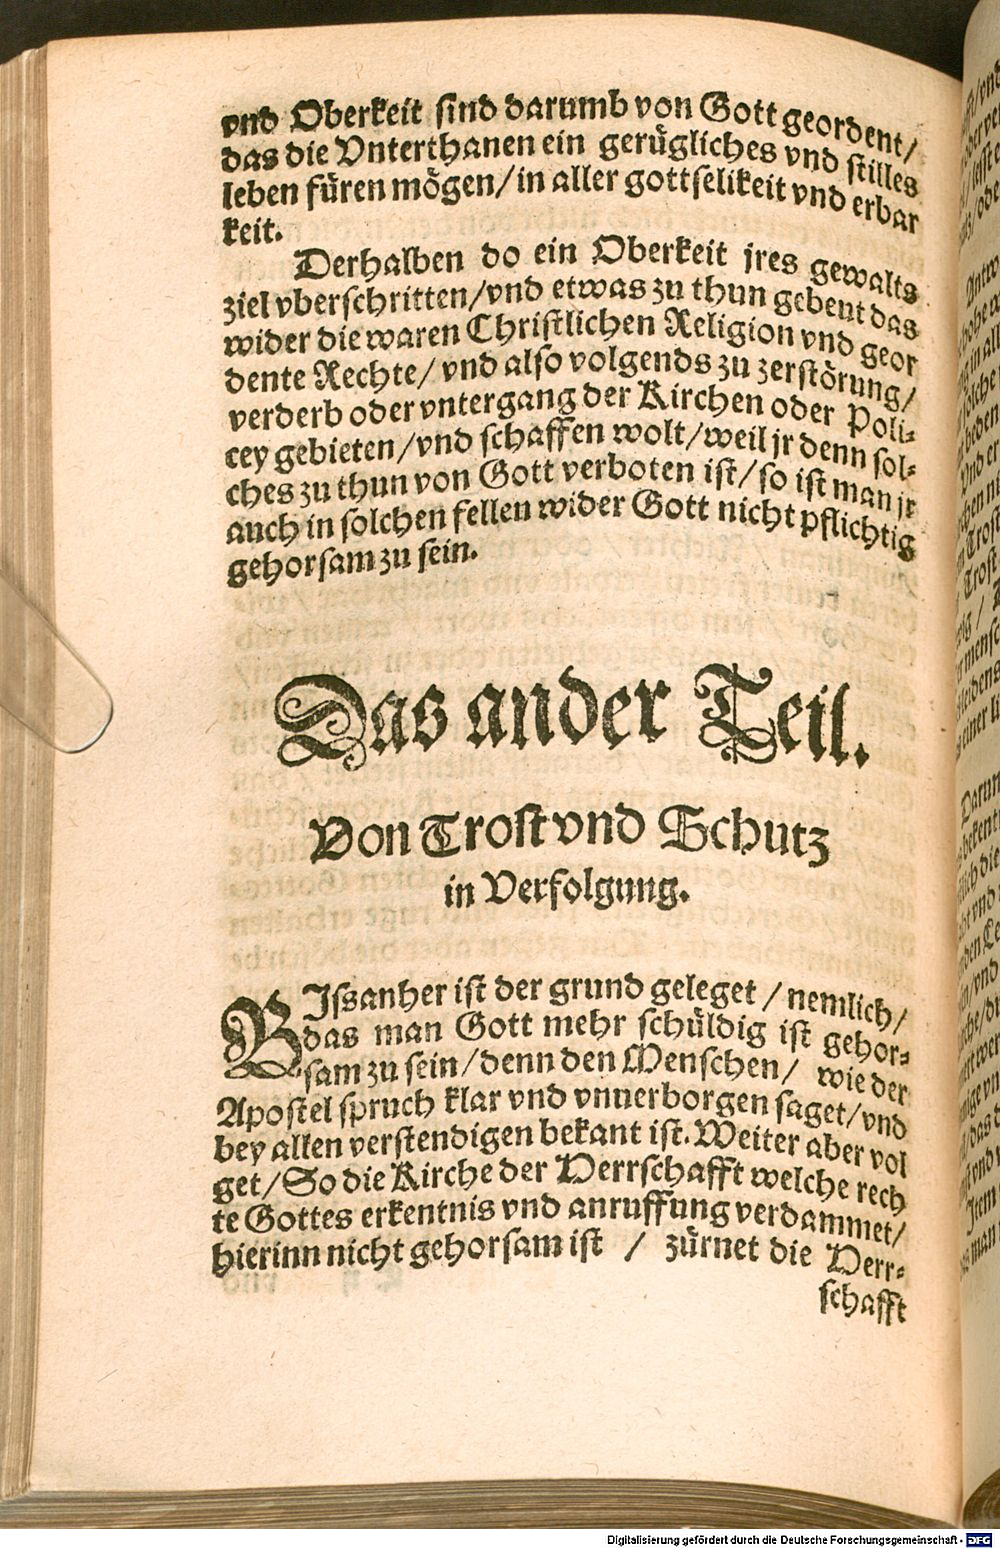 vnd Oberkeit sind darumb von Gott geordent/
das die Vnterthanen ein gerügliches vnd stilles
leben füren mögen/in aller gottselikeit vnd erbar
keit.
Derhalben do ein Oberkeit jres gewalts
ziel vberschritten/vnd etwas zu thun gebeut das
wider die waren Christlichen Religion vnd geor
dente Rechte/ vnd also volgends zu zerstörung/
verderb oder vntergang der Kirchen oder Poli-
cey gebieten/vnd schaffen wolt/weil jr denn sol-
ches zu thun von Gott verboten ist/so ist man jr
auch in solchen fellen wider Gott nicht pflichtig
gehorsam zu sein.
Das ander Teil.
Von Trost vnd Schutz
in Verfolgung.
BIssanher ist der grund geleget /nemlich/
das man Gott mehr schüldig ist gehor-
sam zu sein/denn den Menschen/ wie der
Apostel spruch klar vnd vnuerborgen saget/vnd
bey allen verstendigen bekant ist. Weiter aber vol
get/So die Kirche der Herrschafft welche rech
te Gottes erkentnis vnd anruffung verdammet/
hierinn nicht gehorsam ist / zürnet die Herr-
schafft
Digitalisierung gefördert durch die Deutsche Forschungsgemeinschaft - DFG